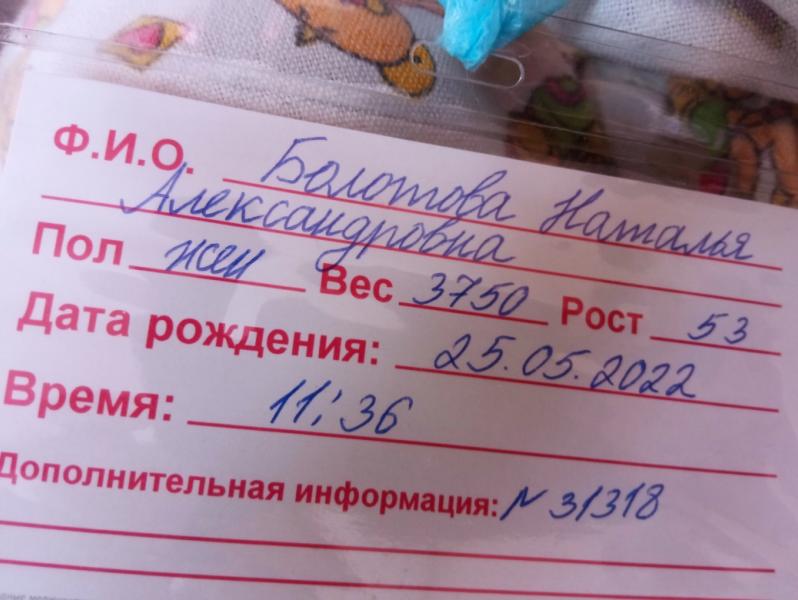 Ф.И.О. Болотова Наталья
Александровна
Пол жен Вес 3750 Рост 53
Дата рождения: 25.05.2022
Время: 11:36
Дополнительная информация: N 31318